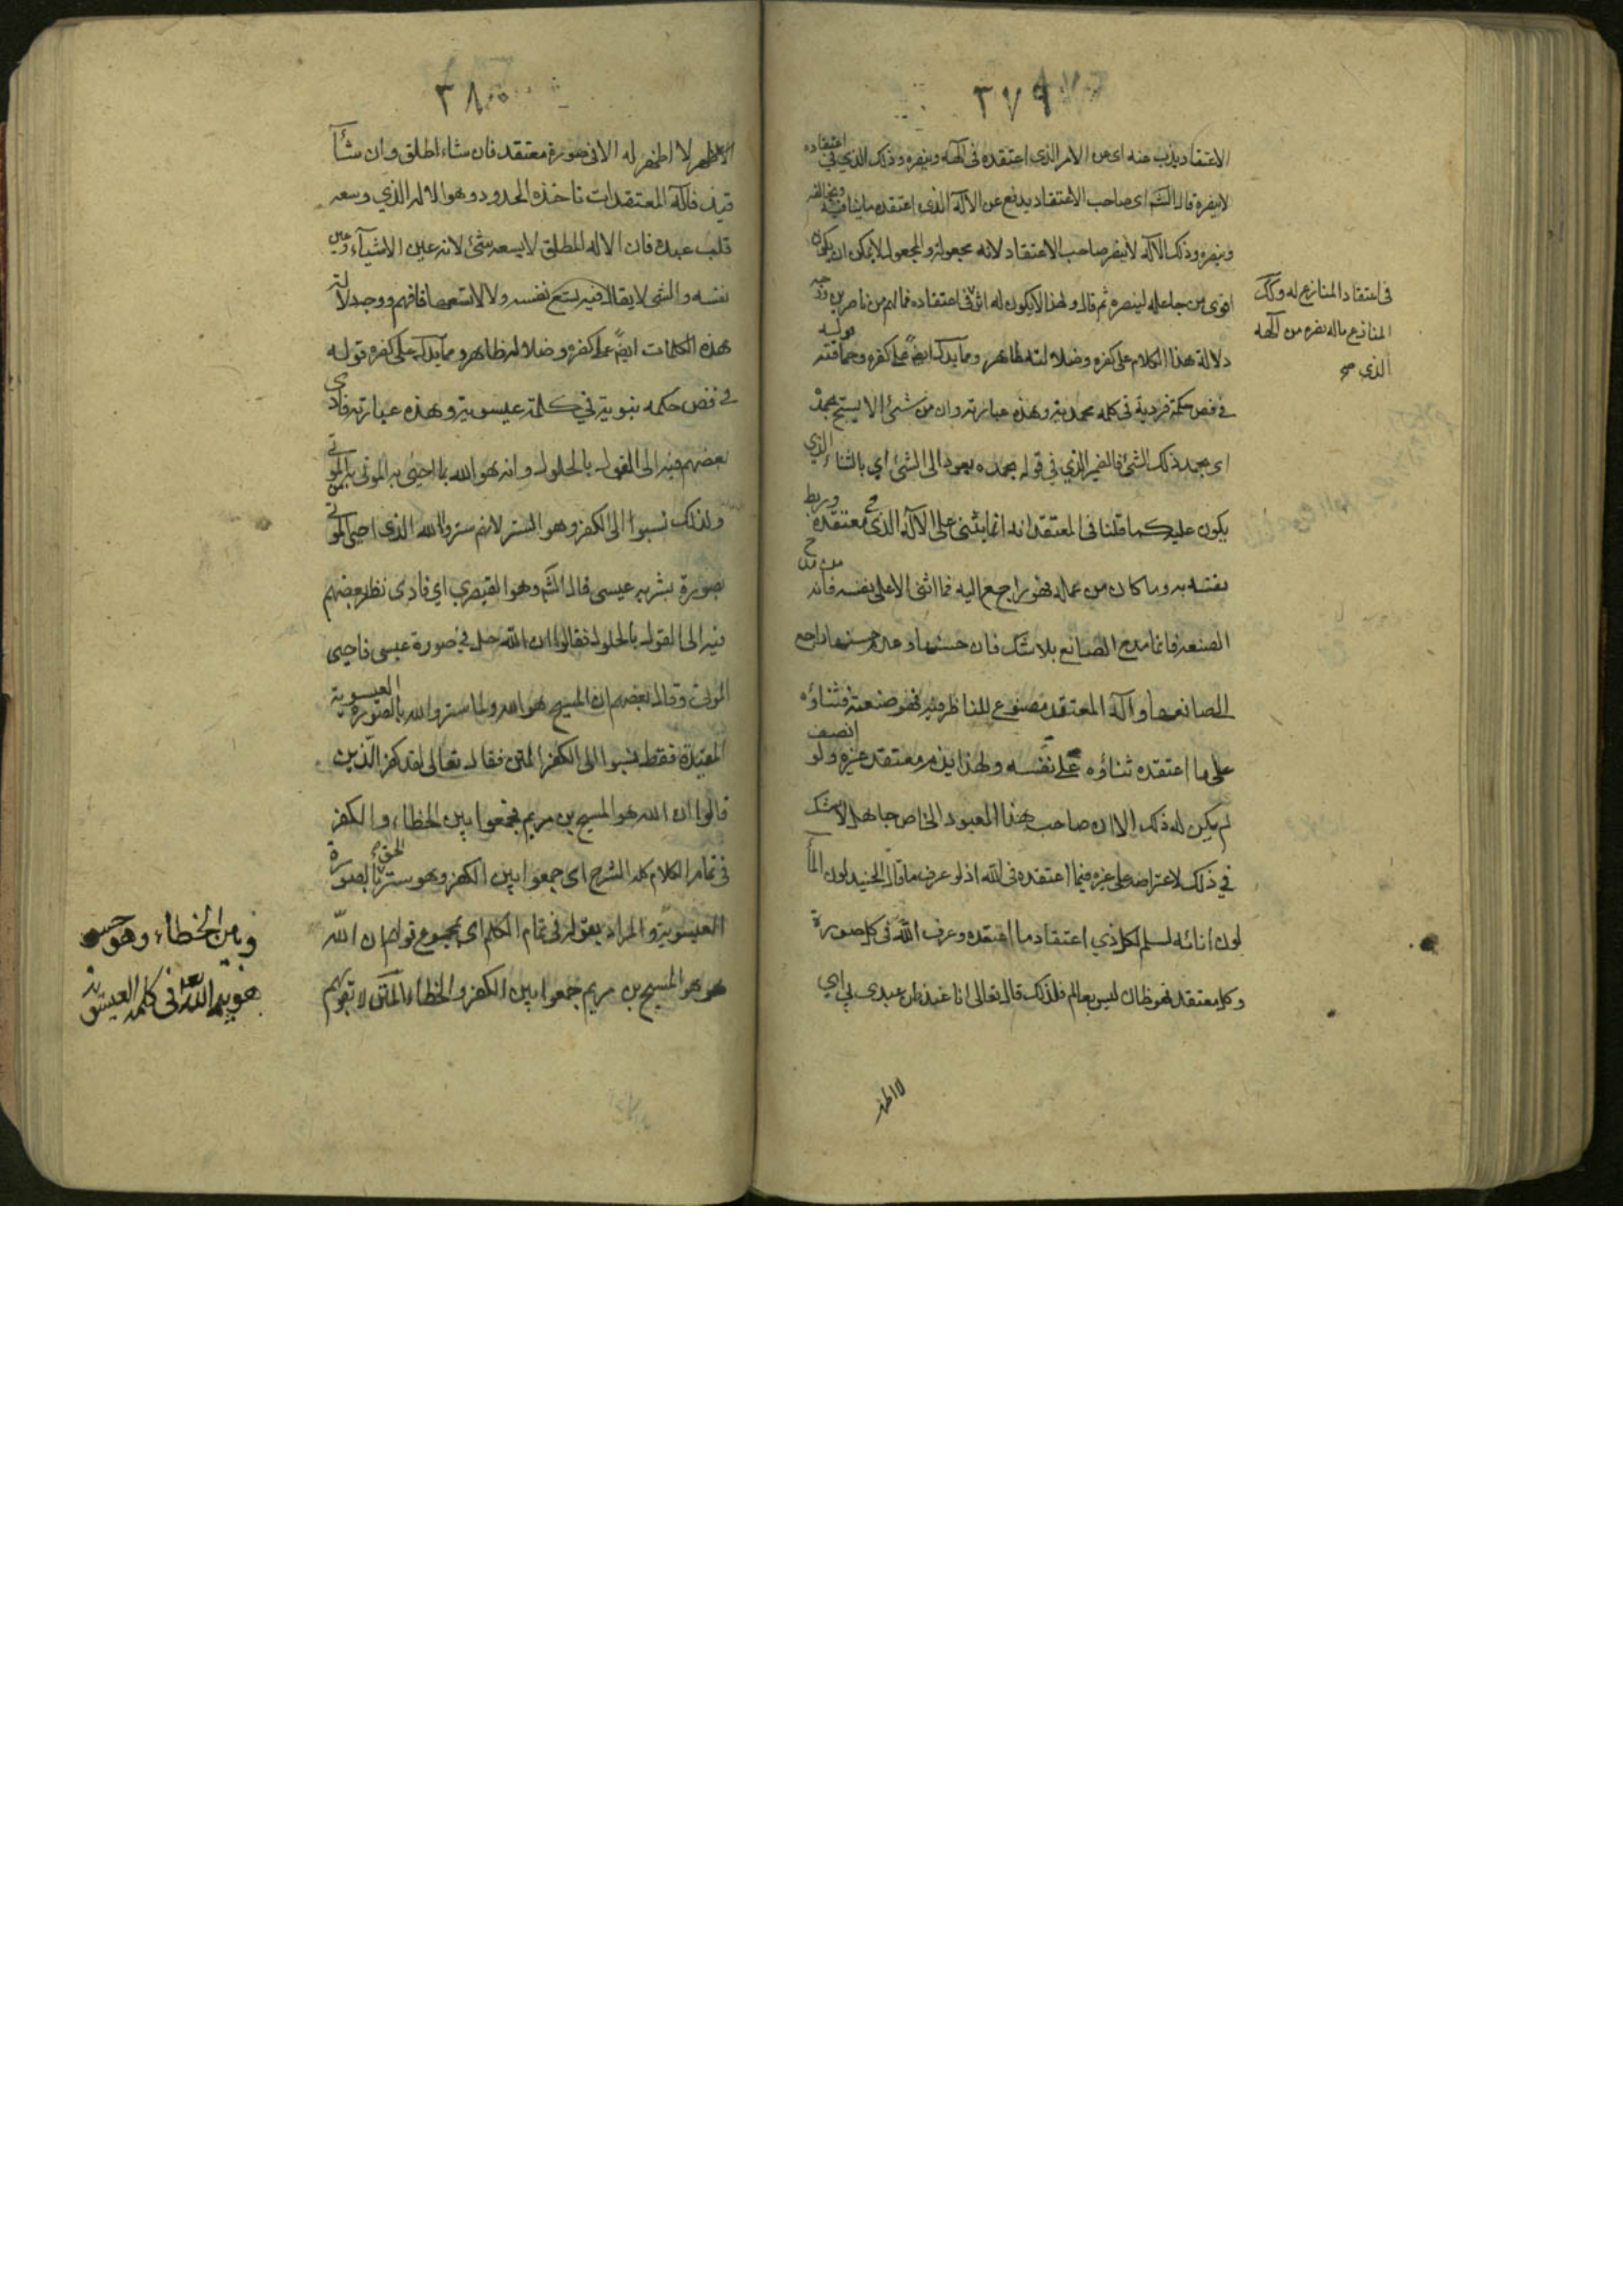 ٣٧٩
الاعتقاد يذب عنه اى عن الامر الذى اعتقده فى الهه وينصره وذلك الذي في اعتقاده
لا ينصره قال الش اى صاحب الاعتقاد يدفع عن الآله الذى اعتقده ما ينافيه ويخالفه
وينصره وذلك الآله لا ينصر صاحب الاعتقاد لانه مجعوله والمجعول لا يمكن ان يكون
اقوى من جاعله لينصره ثم قال ولهذا لا يكون له اثر فى اعتقاده فما لهم من ناصرين
فى اعتقاد المنازع له وكك
المنازع ماله نصره من آلهه
الذي صح
دلالة هذا الكلام على كفره وضلالته ظاهر ومما يدل ايضً على كفره وحماقته قوله
فى فص حكمة فردية فى كلمه محمدية وهذه عبارته وان من شئ الا يسبح بحمده
اى بحمد ذلك الشئ فالضمير الذي في قوله بحمده يعود الى الشئ اي بالثناء الذي
يكون عليه كما قلنا فى المعتقد انه انما يثنى على الآله الذى فى معتقده وربط
نفسه به وما كان من عمله فهو راجع اليه فما اثنى الا على نفسه فانه من مدح
الصنعه فانما مدح الصانع بلا شك فان حسنها وعدم حسنها راجع
الى صانعها وآله المعتقد مصنوع للناظر فيه فهو صنعته فثناؤه
على ما اعتقده ثناؤه على نفسه ولهذا يذم معتقد غيره ولو انصف
لم يكن له ذلك الا ان صاحب هذا المعبود الخاص جاهل بلا شك
في ذلك لاعتراضه على غيره فيما اعتقده فى الله اذ لو عرف ما قال الجنيد لون المأ
لون انائه لسلم لكل ذي اعتقاد ما اعتقده وعرف الله فى كل صورة
وكل معتقد فهو ظان ليس بعالم فلذلك قال تعالى انا عند ظن عبدى بي اي
لا اظهر
٣٨٠
لا اظهر له الا فى صورة معتقد فان شاء اطلق وان شآ
قيد فآله المعتقدات تاخذه الحدود وهو الاله الذي وسعه
قلب عبده فان الاله المطلق لا يسعه شئ لانه عين الاشيآء وعين
نفسه والشى لا يقال فيه يسع نفسه ولا لا تسعها فافهم ووجه دلالة
هذه الكلمات ايضً على كفره وضلاله ظاهر ومما يدل على كفره قوله
فى فص حكمه نبوية في كلمة عيسوية وهذه عبارته فادى
بعضهم فيه الى القول بالحلول وانه هو الله بما احيى به الموتى
ولذلك نسبوا الى الكفر وهو الستر لانهم ستروا الله الذى احيى الموتى
بصورة بشريه عيسى قال الش وهو القيصري اي فادى نظر بعضهم
فيه الى القول بالحلول فقالوا ان الله حل في صورة عيسى فاحيى
الموتى وقال بعضهم ان المسيح هو الله ولما ستروا الله بالصورة العيسوية
المقيدة فقط نسبوا الى الكفر المتن فقال تعالى لقد كفر الذين
قالوا ان الله هو المسيح بن مريم فجمعوا بين الخطاء والكفر
فى تمام الكلام كله الشرح اى جمعوا بين الكفر وهو ستر الحق بالصورة
العيسوية والمراد بقوله فى تمام الكلام اى بمجموع قولهم ان الله
هو المسيح بن مريم جمعوا بين الكفر والخطاء المتن لا بقولهم
وبين الخطاء وهو حصر
هوية الله فى كلمة العيسوية